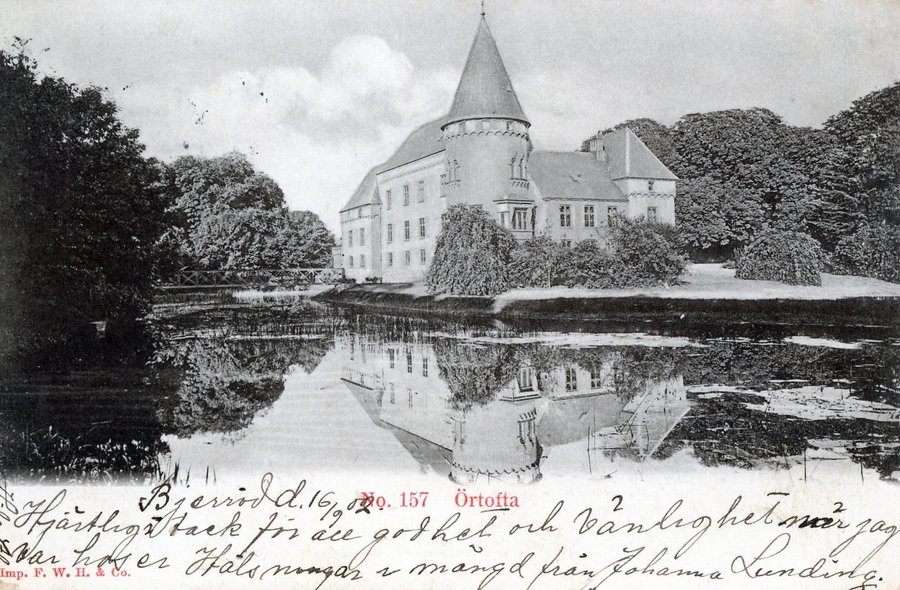 Bjerröd d. 16/9 02
No. 157 Örtofta
Hjärtlig tack för all godhet och Vänlighet när jag
var hos er Hälsningar i mängd från Johanna Lunding.
Imp. F. W. H. & Co.